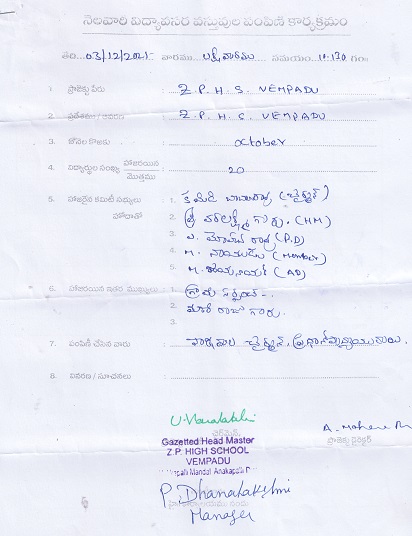 నెలవారి విద్యావసర వస్తువుల పంపిణీ కార్యక్రమం
తేది.. 03/12/2021 వారము లక్ష్మీవారము సమయం. 10:30 గం॥
1. ప్రాజెక్టు పేరు : Z. P. H. S. VEMPADU
2. ప్రదేశము / : Z. P. H. S VEMPADU
3. కొరకు : october
4. విద్యార్థుల సంఖ్య హాజరయిన / మొత్తము : 20
5. హాజరైన కమిటీ సభ్యులు : 1. (ఛైర్మన్)
హోదాతో 2. శ్రీ వరలక్ష్మి గారు. (HM)
3. (P.D)
4. M. నాయుడు (Member)
5. M. (AD)
6. హాజరయిన ఇతర ముఖ్యులు : 1. గ్రామ సర్పంచ్ -.
2. రాజు గారు.
3.
7. పంపిణీ చేసిన వారు : పాఠశాల ఛైర్మన్, ప్రధానోపాధ్యాయులు.
8. వివరణ / సూచనలు :
ఛైర్మెన్
Gazetted Head Master
Z.P. HIGH SCHOOL
VEMPADU
Mandal Anakapalli
ప్రాజెక్టు డైరెక్టర్
P. Dhanalakshmi
Manager